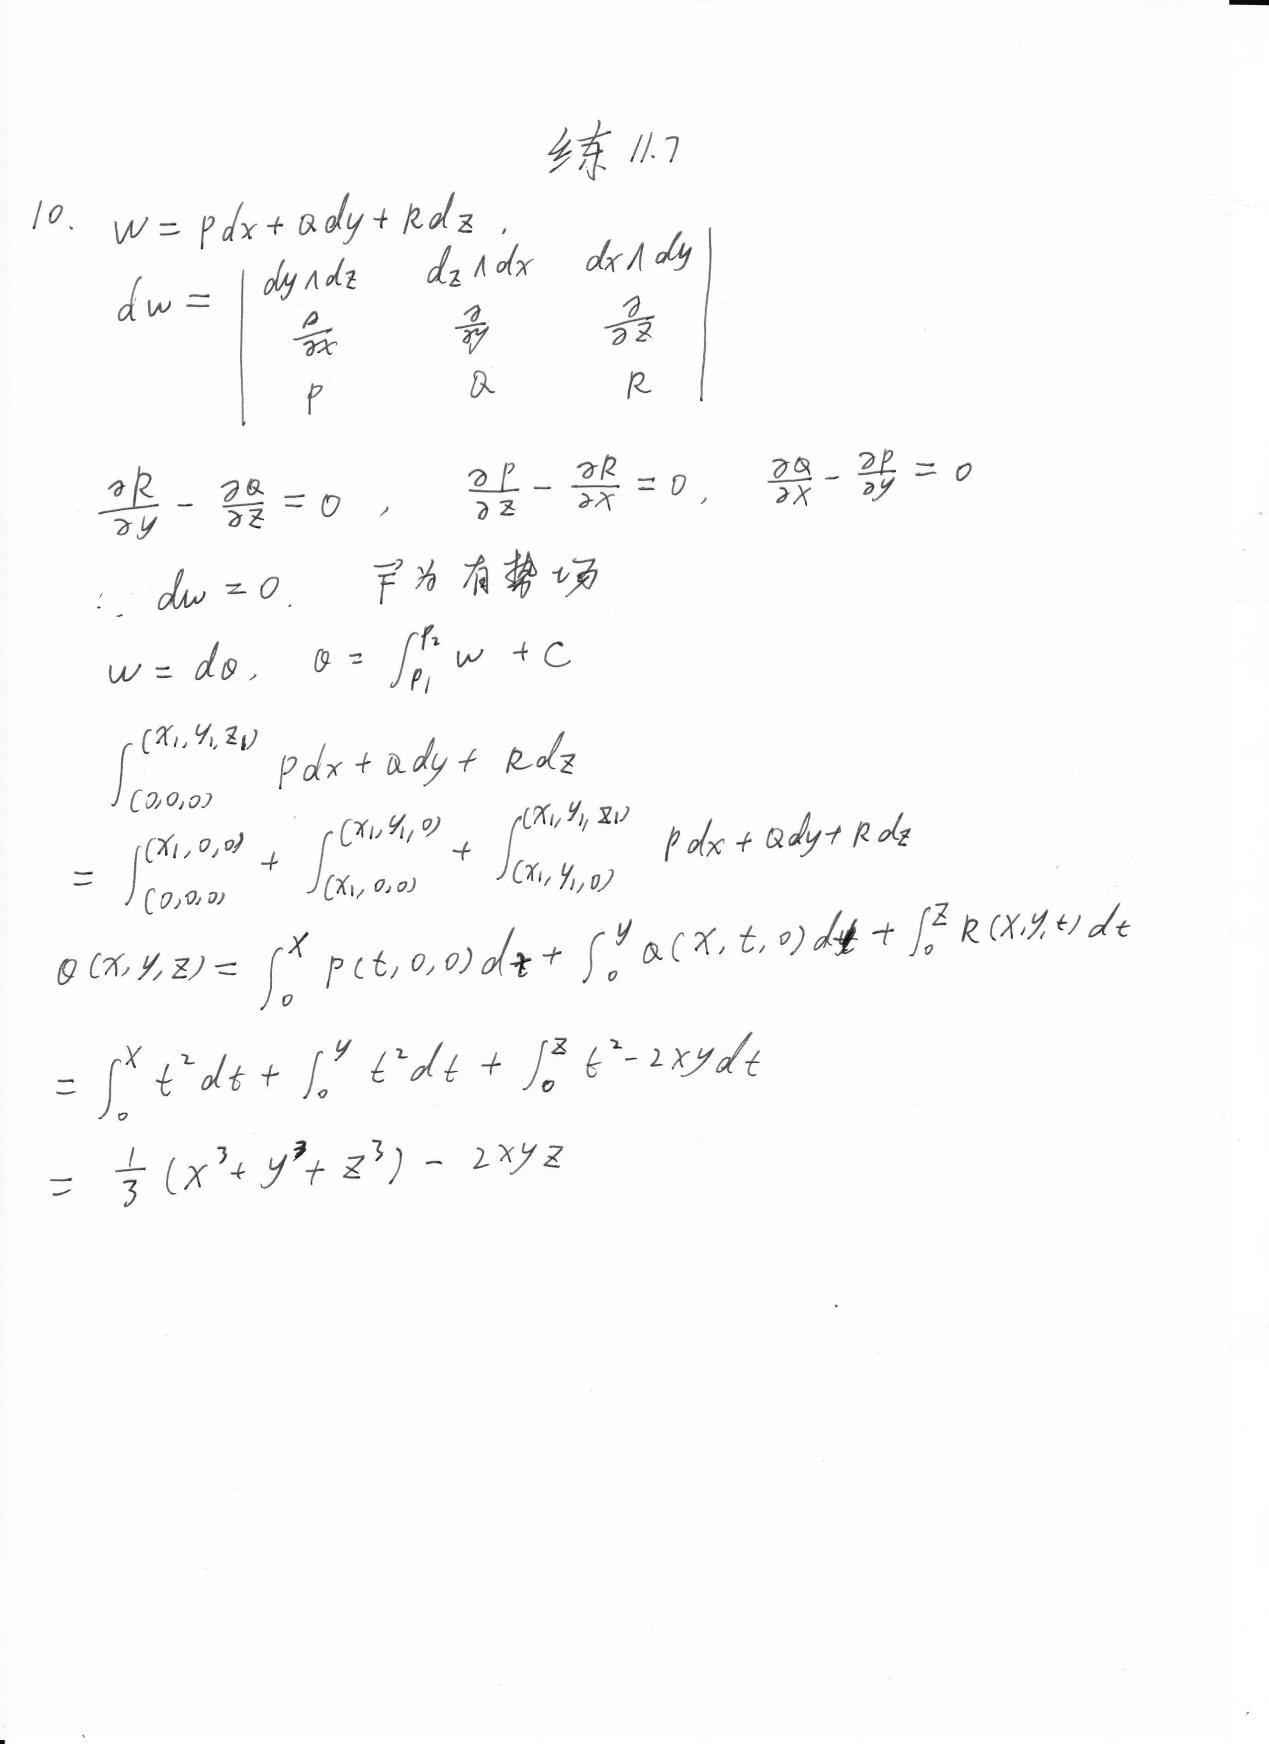 练 11.7
10. w = Pdx + Qdy + Rdz .
dw = | dy∧dz dz∧dx dx∧dy |
∂/∂x ∂/∂y ∂/∂z
P Q R
∂R/∂y - ∂Q/∂z = 0 , ∂P/∂z - ∂R/∂x = 0 , ∂Q/∂x - ∂P/∂y = 0
∴ dw = 0. F⃗ 为有势场
w = dθ , θ = ∫_{P₁}^{P₂} w + C
∫_{(0,0,0)}^{(x₁,y₁,z₁)} Pdx + Qdy + Rdz
= ∫_{(0,0,0)}^{(x₁,0,0)} + ∫_{(x₁,0,0)}^{(x₁,y₁,0)} + ∫_{(x₁,y₁,0)}^{(x₁,y₁,z₁)} Pdx + Qdy + Rdz
θ(x,y,z) = ∫₀^x P(t,0,0)dt + ∫₀^y Q(x,t,0)dt + ∫₀^z R(x,y,t)dt
= ∫₀^x t²dt + ∫₀^y t²dt + ∫₀^z t²-2xydt
= 1/3 (x³ + y³ + z³) - 2xyz